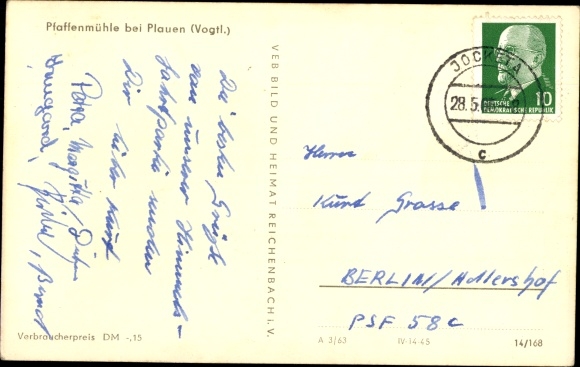 Pfaffenmühle bei Plauen (Vogtl.)
Die besten Grüße
von unserer Himmels-
fahrtspartie senden
Dir lieber Kurt
Papa, Margitta,
Irmgard, Bernd
VEB BILD UND HEIMAT REICHENBACH i. V.
JOCKETA
28.5.
c
10
DEUTSCHE
DEMOKRATISCHE REPUBLIK
Herrn
Kurt Grasse
BERLIN/Adlershof
PSF 58c
Verbraucherpreis DM -,15
A 3/63 IV-14-45 14/168